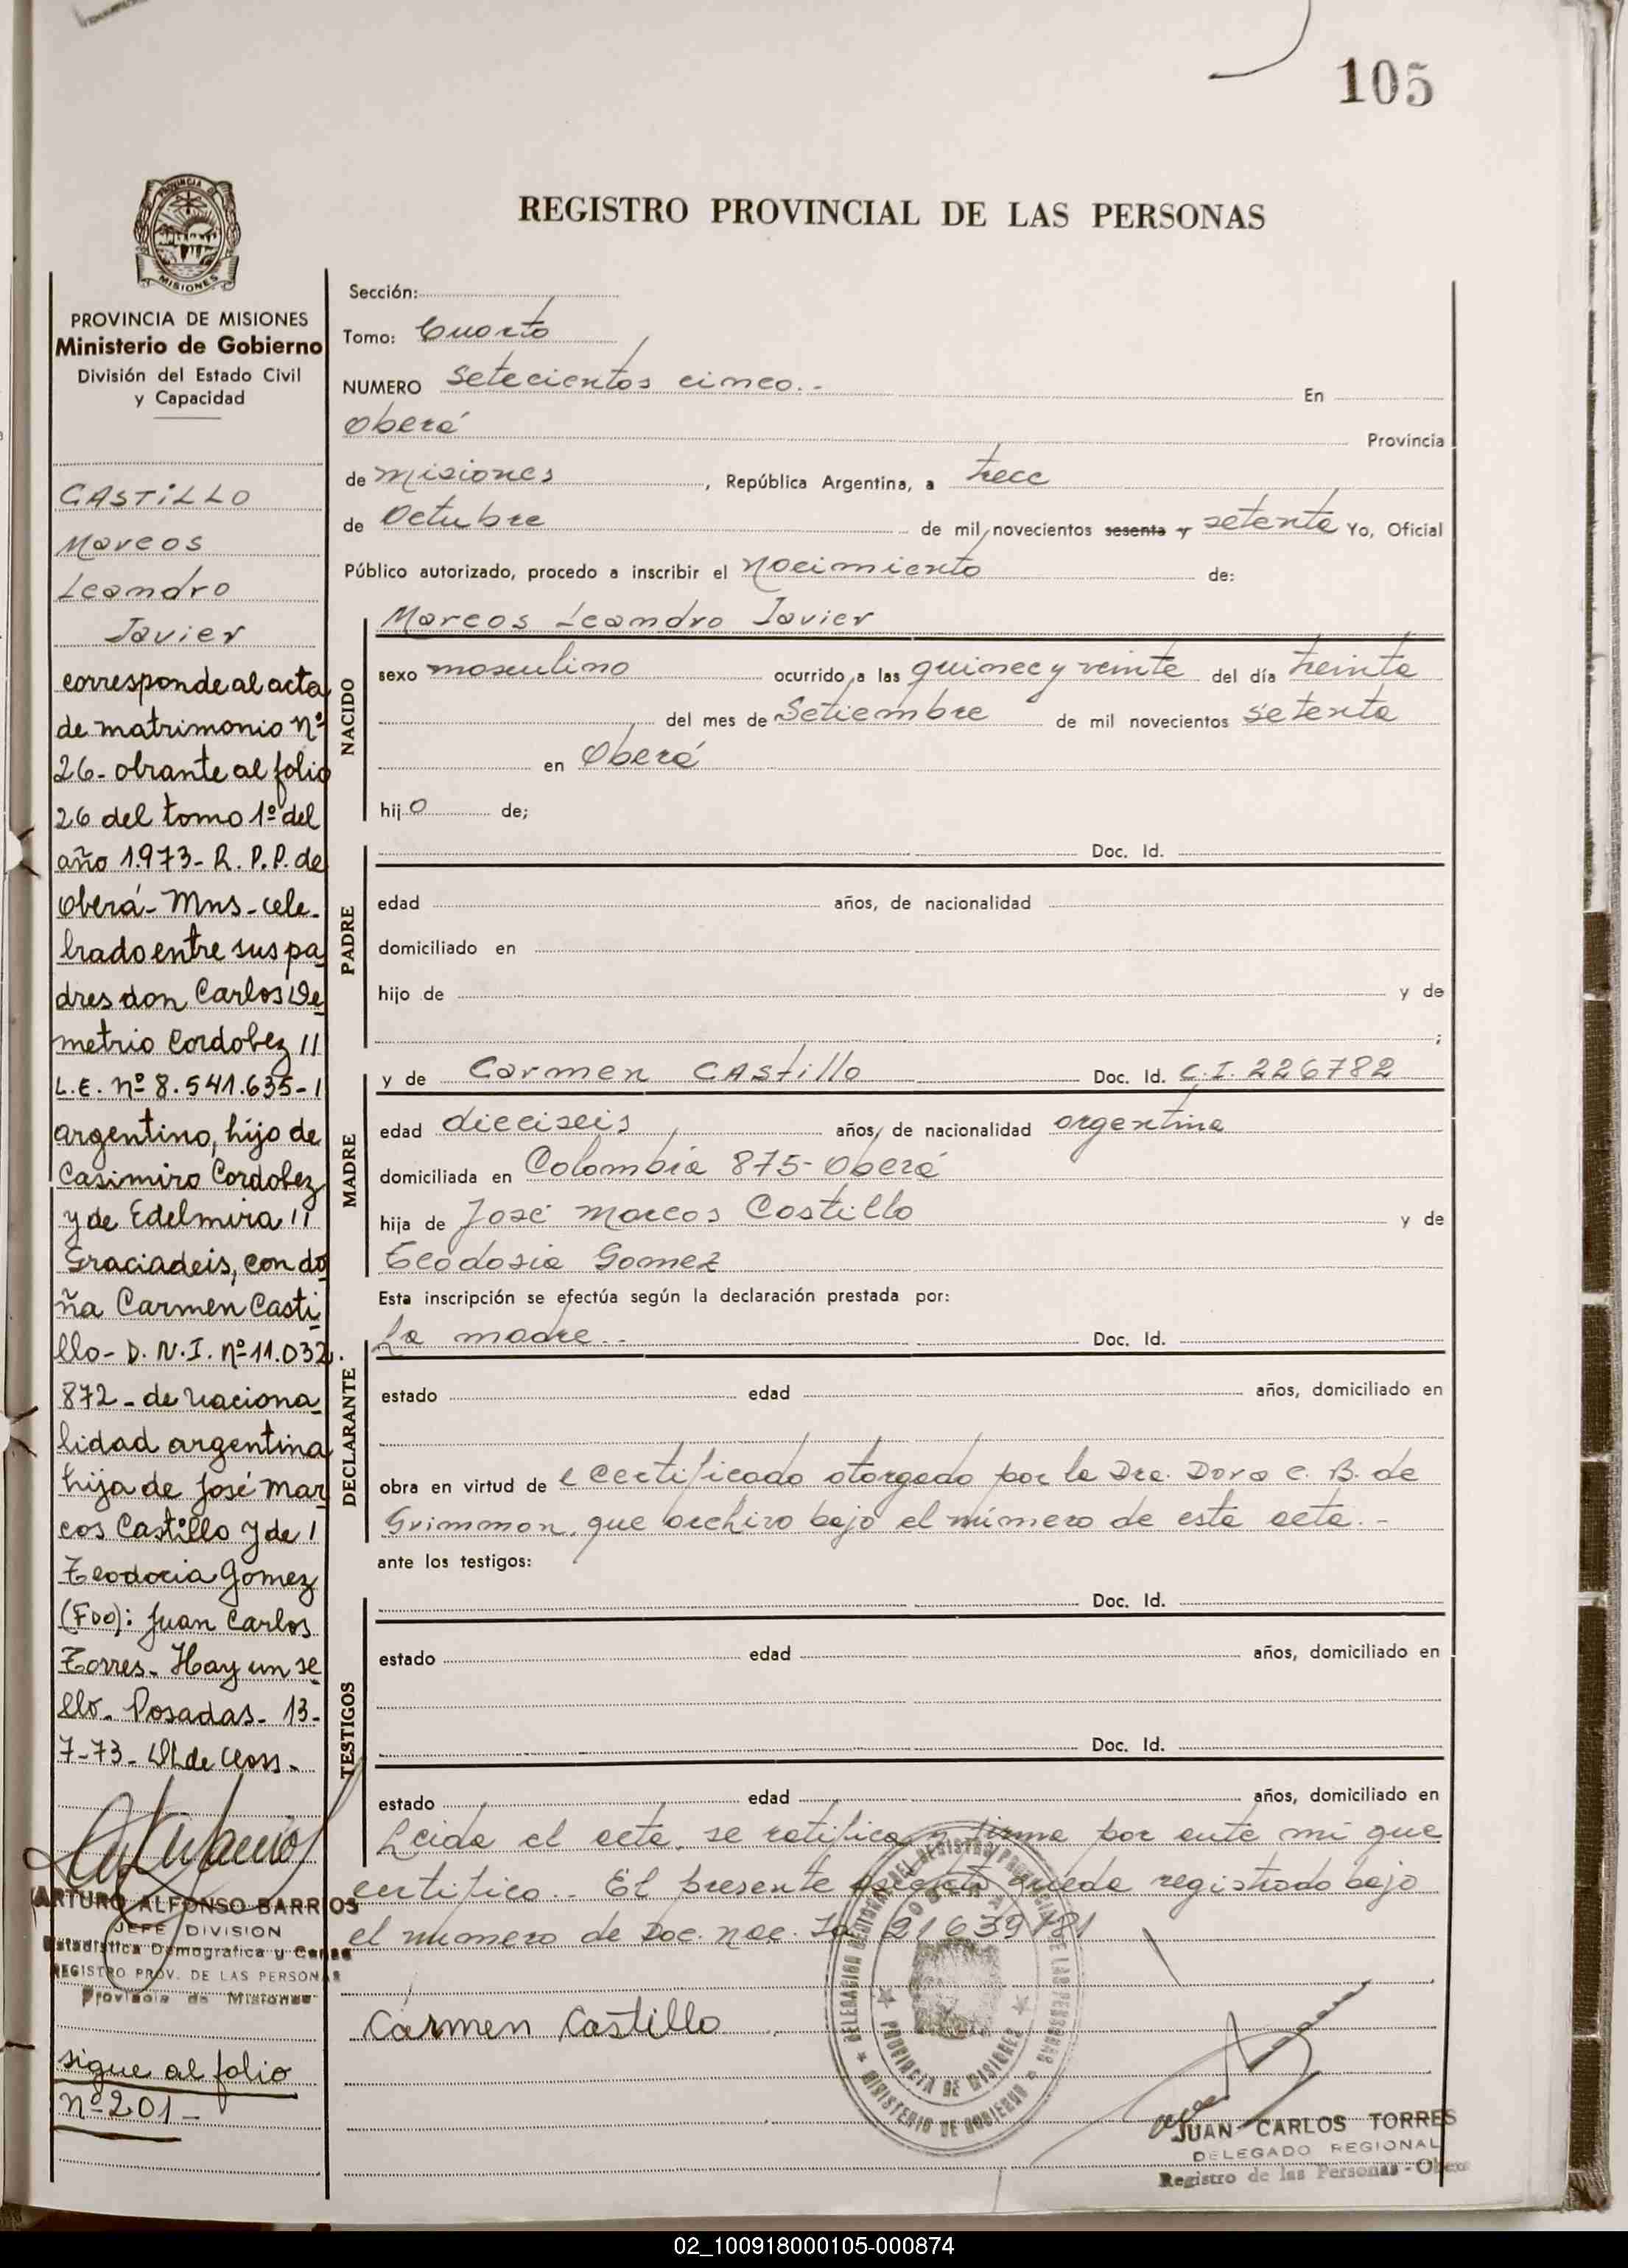 105
PROVINCIA DE
MISIONES
REGISTRO PROVINCIAL DE LAS PERSONAS
PROVINCIA DE MISIONES
Ministerio de Gobierno
División del Estado Civil
y Capacidad
CASTILLO
Marcos
Leandro
Javier
corresponde al acta
de matrimonio nº
26- obrante al folio
26 del tomo 1º del
año 1.973- R. P. P. de
Oberá- Mns- cele-
brado entre sus pa-
dres don Carlos De-
metrio Cordobez //
L.E. nº 8.541.635-/
argentino, hijo de
Casimiro Cordobez
y de Edelmira //
Graciadeis, con do-
ña Carmen Casti-
llo- D. N. I. nº 11.032.
872- de naciona-
lidad argentina
hija de José Mar-
cos Castillo y de /
Teodocia Gomez
(Fdo): Juan Carlos
Torres- Hay un se-
llo- Posadas- 13-
7-73-
ARTURO ALFONSO BARRIOS
JEFE DIVISION
Estadística Demografica y Censos
REGISTRO PROV. DE LAS PERSONAS
Provincia de Misiones
sigue al folio
nº 201-
Sección:
Tomo: Cuarto
NUMERO setecientos cinco.- En
Oberá Provincia
de Misiones, República Argentina, a trece
de Octubre de mil novecientos sesenta y setenta Yo, Oficial
Público autorizado, procedo a inscribir el nacimiento de:
NACIDO
Marcos Leandro Javier
sexo masculino ocurrido a las quince y veinte del día treinta
del mes de Setiembre de mil novecientos setenta
en Oberá
hijo de;
PADRE
Doc. Id.
edad años, de nacionalidad
domiciliado en
hijo de y de
;
MADRE
y de Carmen CAStillo Doc. Id. C.I. 226782
edad dieciseis años, de nacionalidad argentina
domiciliada en Colombia 875- Oberá
hija de José Marcos Castillo y de
Teodosia Gomez
Esta inscripción se efectúa según la declaración prestada por:
DECLARANTE
La madre.- Doc. Id.
estado edad años, domiciliado en
obra en virtud de certificado otorgado por la Dra. Dora C. B. de
Grimmon, que archivo bajo el número de esta acta.-
ante los testigos:
TESTIGOS
Doc. Id.
estado edad años, domiciliado en
Doc. Id.
estado edad años, domiciliado en
Leida el acta, se ratifica y firma por ante mi que
certifico.- El presente queda registrado bajo
el número de Doc. nac. Id. 21639781
Carmen Castillo
DELEGACION REGIONAL DEL REGISTRO PROVINCIAL DE LAS PERSONAS
OBERA
PROVINCIA DE MISIONES
MINISTERIO DE GOBIERNO
JUAN CARLOS TORRES
DELEGADO REGIONAL
Registro de las Personas - Obera
02_100918000105-000874